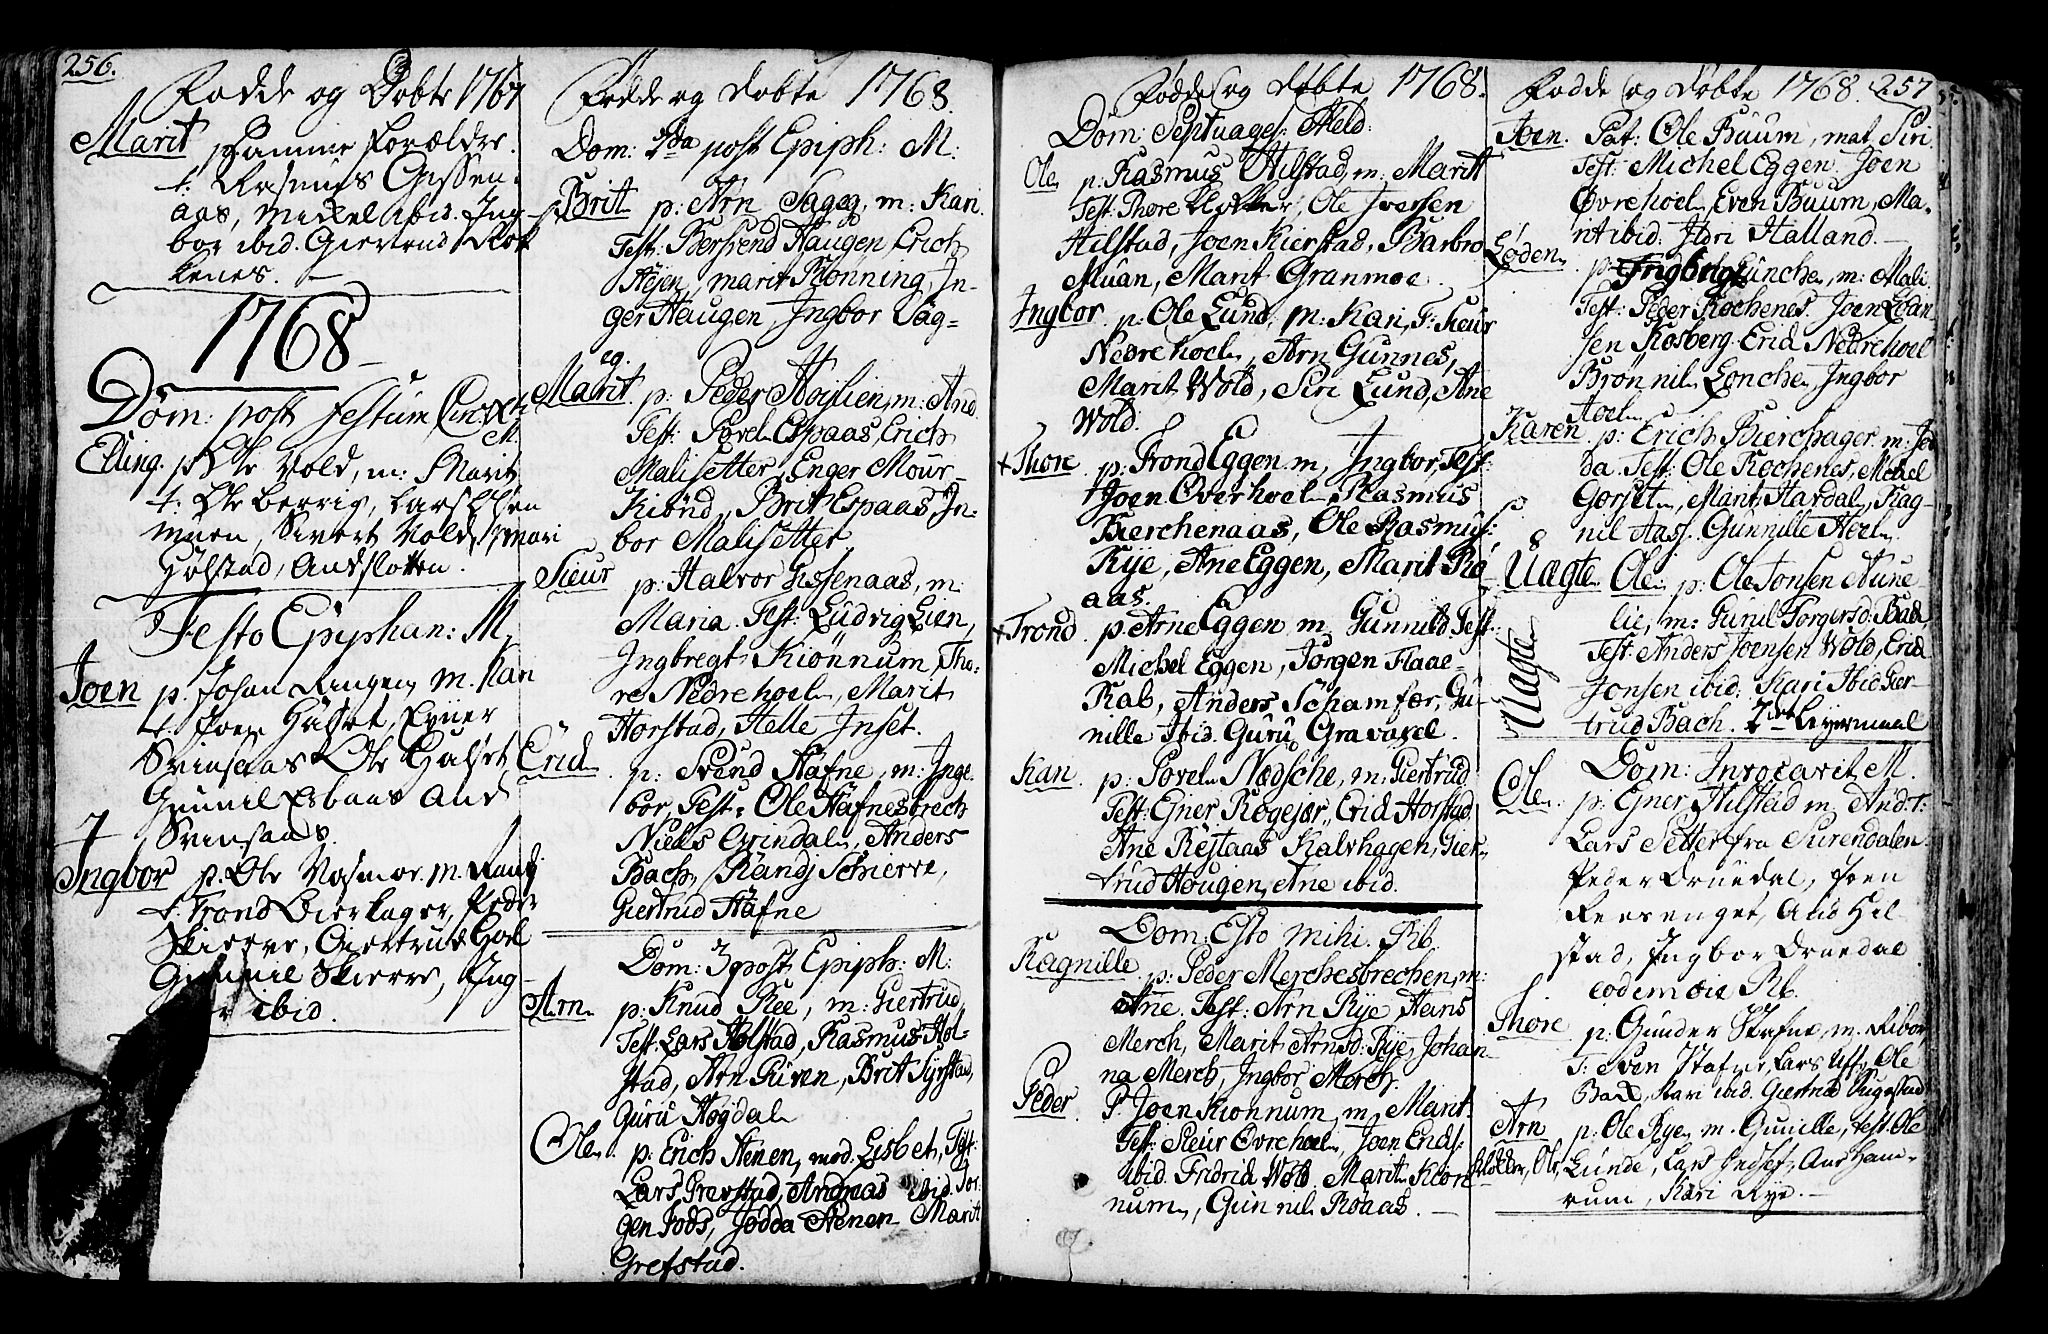 256.
Fødde og Døbte 1767
Marit samme Forældre.
t: Rasmus Gissen-
aas, Mickel ibid. Ing-
bor ibid. Giertrud Rok
kenes.
1768
Dom: post festum Circ:
M.
Elling. p: Ole Vold, m: Marit
t: Ole Berrig, Lars
muen, Sivert Vold, Mari
Holstad, And
Festo Epiphan: M,
Joen p. Johan Ringen, m. Kari
t. Joen Halset, Einer
Svinsaas Ole Halset,
Gunnil Esbaas And
Svinsaas.
Ingbor p. Ole Vosmoe. m. Randi
t. Trond Bierkager, Peder
Skierve, Giertrud Hoel
Gunnil Skierve, Ing-
ibid.
Fødde og døbte 1768.
Dom: 2da post Epiph: M:
Brit p: Arn Sageg, m: Kari.
Test: Bersvend Haugen, Erich
Højen, marit Rønning, In-
ger Haugen, Ingbor Sag-
eg.
Marit. p: Peder Høislien, m: And.
Test: Povel Espaas, Erich
Malisetter, Enger Mour-
Kiønd, Brit Espaas, In-
bor Malisetter
Sieur p: Halvor Gissenaas, m:
Maria. Test: Ludvig Lien,
Ingbregt Kiønnum, Tho-
re Nedrehoel, Marit
Horstad, Helle Inset.
Erid p: Svend Häfne, m: Inge
bor, Test: Ole Häfnesbrech
Niels Grindal, Anders
Bach, Randj Schierve,
Giertrud Häfne
Dom: 3 post Epiph: M:
Arn p: Knud Ree, m: Giertrud,
Test: Lars Holstad, Rasmus Hol-
stad, Arn Riven, Brit Syrstad,
Guru Høgdal
Ole p: Erich Henen, mod. Lisbet, Test:
Lars Prevstad, Andreas ibid. Jør-
gen Fods, Jødda Henen Marit
Grefstad.
Fødde og døbte 1768.
Dom: Septuages. Meld:
Ole p: Rasmus Hilstad, m: Maritt
Test: Thore Klokker, Ole Iversen
Hilstad, Joen Kierstad, Barbro
Muan, Marit Granmoe
Ingbor p: Ole Lund, m: Kari, T: Sieur
Nedrehoel, Arn Gunnes,
Marit Wold, Siri Lund, Ane
Wold.
+ Thore p: Trond Eggen m, Ingbor, Test:
Joen Overhoel Rasmus
Bierchenaas, Ole Rasmus:
Rye, Ane Eggen, Marit Rø
aas.
+ Trond p: Arne Eggen m Gunnild Test:
Michel Eggen, Jørgen Flaae-
Rab, Anders Schamfær, Gu-
nille Ibid. Guru Gravaxel.
Kari p: Povel Nædsche, m: Giertrud
Test: Ejner Røgejær, Erid Horstad
Ane Røstaas Kalvhagen, Gier-
trud Hougen, Ane ibid.
Dom: Esto mihi. Rb.
Ragnille p: Peder Merchesbrechen, m:
Ane. Test: Arn Rye, Hans
Merch, Marit Arnsd: Rye, Johan-
na Merch, Ingbor Merch.
Peder P: Joen Kionnum, m, Marit
Test: Sieur Øvrehoel, Joen Ends:
ibid. Fridrid Wold Marit Kiøn
num, Gunnil Røaas.
Fødde og døbte 1768. 257
Joen. Pat: Ole Buum, mat. Siri
Test: Michel Eggen. Joen
Øvrehoel, Even Buum, Ma-
rit ibid: Ildri Halland.
Loden p: Lunche, m: Mali.
Test: Peder Rochenes. Joen Lodn
sen Kosberg. Erid Nedrehoel
Brønnil Lonche, Ingbor
Hoel
Karen p: Erich Bierchager. m:
da. Test: Ole Rochenes, Michel
Gorset, Marit Hardal, Rag-
nil Aas. Gunnille Herl
Uægte Ole p: Ole Jonsen Aune
Uægte
lie, m: Gunil Torgersd: Bæk
lie Test: Anders Joensen Wold, Erid
Jonsen ibid: Kari Ibid. Gier-
trud Bach. 2den Leyermaal
Dom: Invocavit M.
Ole p: Ejner Hilstad m. And. t:
Lars Setter fra Surendalen
Peder Druedal, Joen
Reesenget, And Hil-
stad, Ingbor Druedal
eodem die Rb.
Thore p: Gunder Stafne, m. Ribor
T: Even Stafne, Lars Uf, Ole
Bach, Kari ibid. Giertrud
Arn p: Ole Rye, m. Gunille, test. Ole
Klokker, Ole Lunde, Lars Indset, And Ham-
rum, Kari Rye.